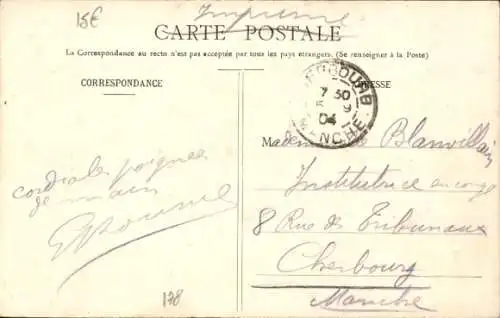 15€
Imprimé
CARTE POSTALE
La Correspondance au recto n'est pas acceptée par tous les pays étrangers. (Se renseigner à la Poste)
CORRESPONDANCE
ADRESSE
CHERBOURG
7 30
5 9
04
MANCHE
cordiales poignées
de main
Mademoiselle Blanvillain
Institutrice en congé
8 Rue des Tribunaux
Cherbourg
Manche
178